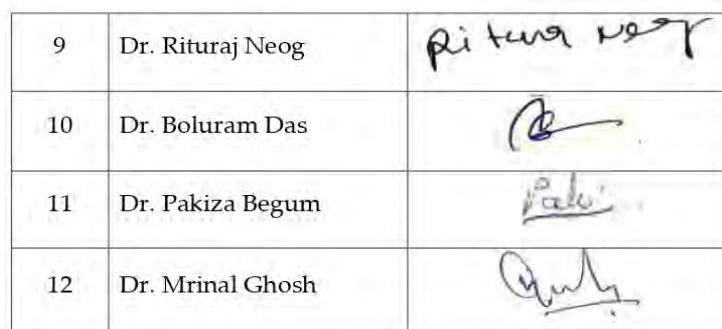 9 Dr. Rituraj Neog Rituraj Neog
10 Dr. Boluram Das
11 Dr. Pakiza Begum
12 Dr. Mrinal Ghosh